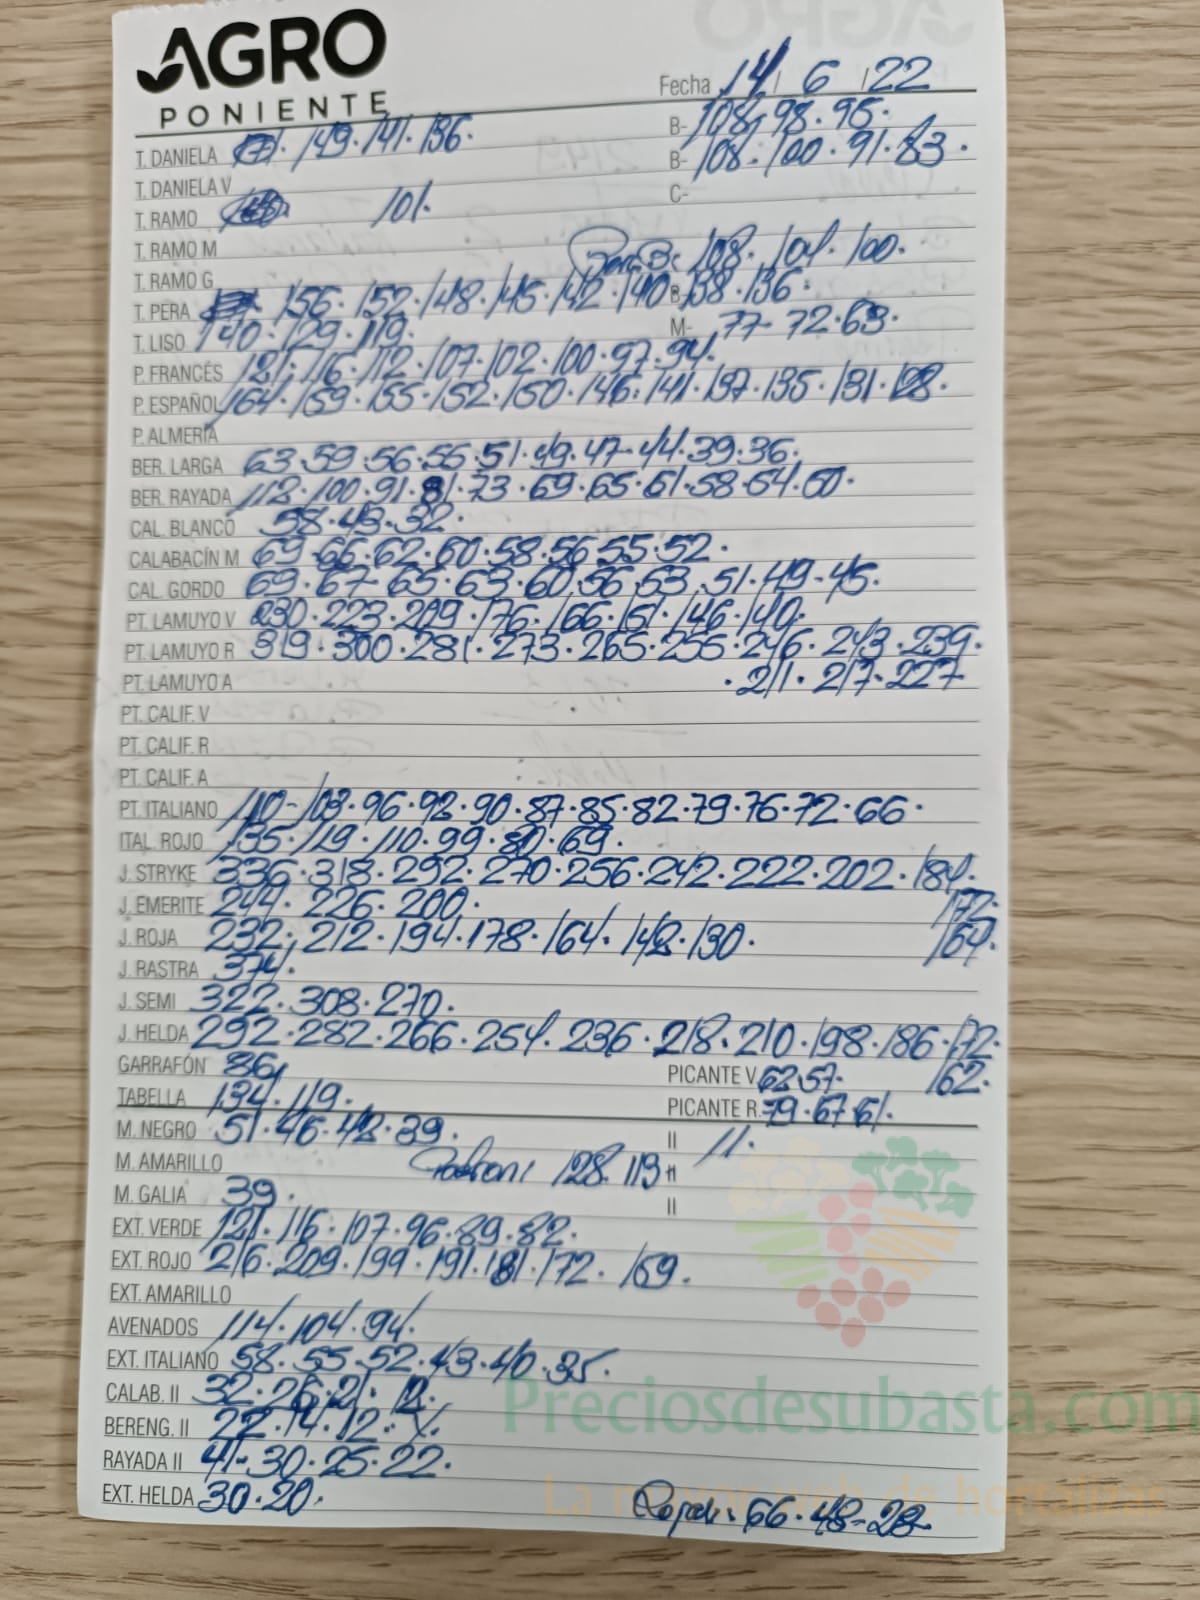 AGRO
PONIENTE
Fecha 14 / 6 / 22
T. DANIELA 149. 141. 136. B- 108. 98. 95.
T. DANIELA V B- 108. 100. 91. 83.
T. RAMO 101. C-
T. RAMO M
T. RAMO G 108. 104. 100.
T. PERA 156. 152. 148. 145. 142. 140. B- 138. 136.
T. LISO 140. 129. 119. M- 77- 72. 63.
P. FRANCÉS 121. 116. 112. 107. 102. 100. 97. 94.
P. ESPAÑOL 164. 159. 155. 152. 150. 146. 141. 137. 135. 131. 128.
P. ALMERÍA
BER. LARGA 63. 59. 56. 55. 51. 49. 47. 44. 39. 36.
BER. RAYADA 112. 100. 91. 81. 73. 69. 65. 61. 58. 54. 50.
CAL. BLANCO 58. 43. 32.
CALABACÍN M 69. 66. 62. 60. 58. 56. 55. 52.
CAL. GORDO 69. 67. 65. 63. 60. 56. 53. 51. 49. 45.
PT. LAMUYO V 230. 223. 209. 176. 166. 151. 146. 140.
PT. LAMUYO R 319. 300. 281. 273. 265. 255. 246. 243. 239.
PT. LAMUYO A . 211. 217. 227
PT. CALIF. V
PT. CALIF. R
PT. CALIF. A
PT. ITALIANO 110- 103. 96. 92. 90. 87. 85. 82. 79. 76. 72. 66.
ITAL. ROJO 135. 119. 110. 99. 80. 69.
J. STRYKE 336. 318. 292. 270. 256. 242. 222. 202. 184.
J. EMERITE 244. 226. 200. 172.
J. ROJA 232. 212. 194. 178. 164. 142. 130. 164.
J. RASTRA 374.
J. SEMI 322. 308. 270.
J. HELDA 292. 282. 266. 254. 236. 218. 210. 198. 186. 172.
GARRAFÓN 86 PICANTE V. 62. 57. 162.
TABELLA 134. 119. PICANTE R. 79. 67. 61.
M. NEGRO 51. 46. 42. 39. II 11.
M. AMARILLO Padron: 128. 119 II
M. GALIA 39. II
EXT. VERDE 121. 116. 107. 96. 89. 82.
EXT. ROJO 216. 209. 199. 191. 181. 172. 159.
EXT. AMARILLO
AVENADOS 114. 104. 94.
EXT. ITALIANO 58. 55. 52. 43. 40. 35.
CALAB. II 32. 26. 21. 12.
BERENG. II 22. 14. 12.
RAYADA II 41- 30. 25. 22.
EXT. HELDA 30. 20. 66. 48- 28-
Preciosdesubasta.com
La mayor web de hortalizas